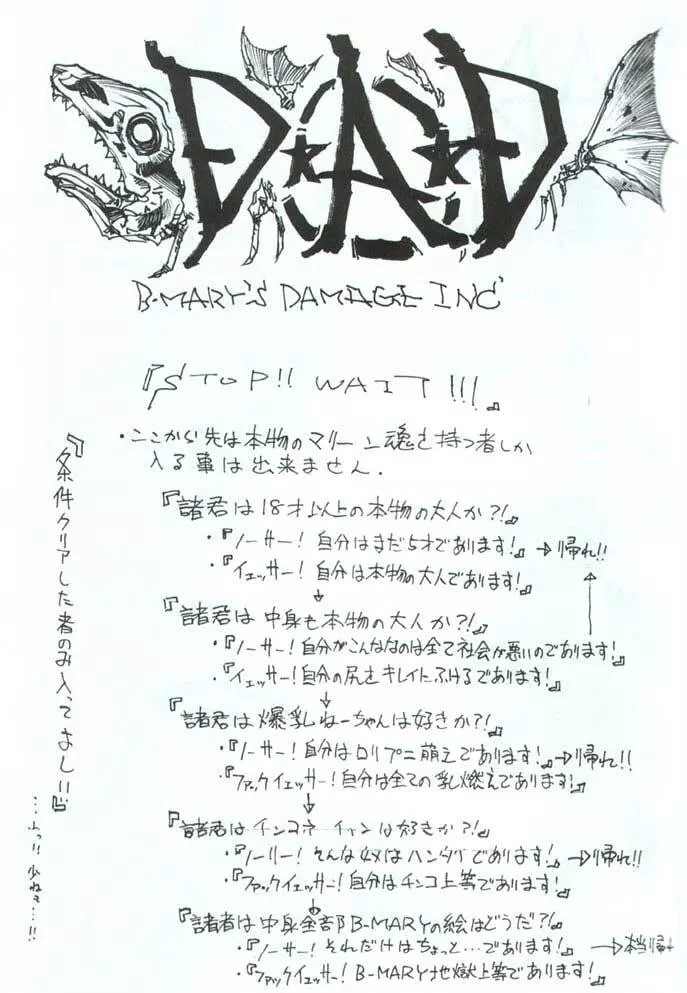 D★A★D
B-MARY'S DAMAGE INC
『STOP!! WAIT!!!』
・ここから先は本物のマリーン魂を持つ者しか
入る事は出来ません.
『諸君は18才以上の本物の大人か?!』
・『ノーサー!自分はまだ5才であります!』→帰れ!!
・『イェッサー!自分は本物の大人であります!』
『諸君は中身も本物の大人か?!』
・『ノーサー!自分がこんななのは全て社会が悪いのであります!』
・『イェッサー!自分の尻をキレイにふけるであります!』
『諸君は爆乳ねーちゃんは好きか?!』
・『ノーサー!自分はロリプニ萌えであります!』→帰れ!!
・『ファックイェッサー!自分は全ての乳燃えであります!』
『諸君はチンコネーチャンは好きか?!』
・『ノーサー!そんな奴はハンタイであります!』→帰れ!!
・『ファックイェッサー!自分はチンコ上等であります!』
『諸君は中身全部B-MARYの絵はどうだ?!』
・『ノーサー!それだけはちょっと…であります!』→本当帰れ
・『ファックイェッサー!B-MARY地獄上等であります!』
『条件クリアした者のみ入ってよし!!』
…ふっ!!少ねぇ…!!